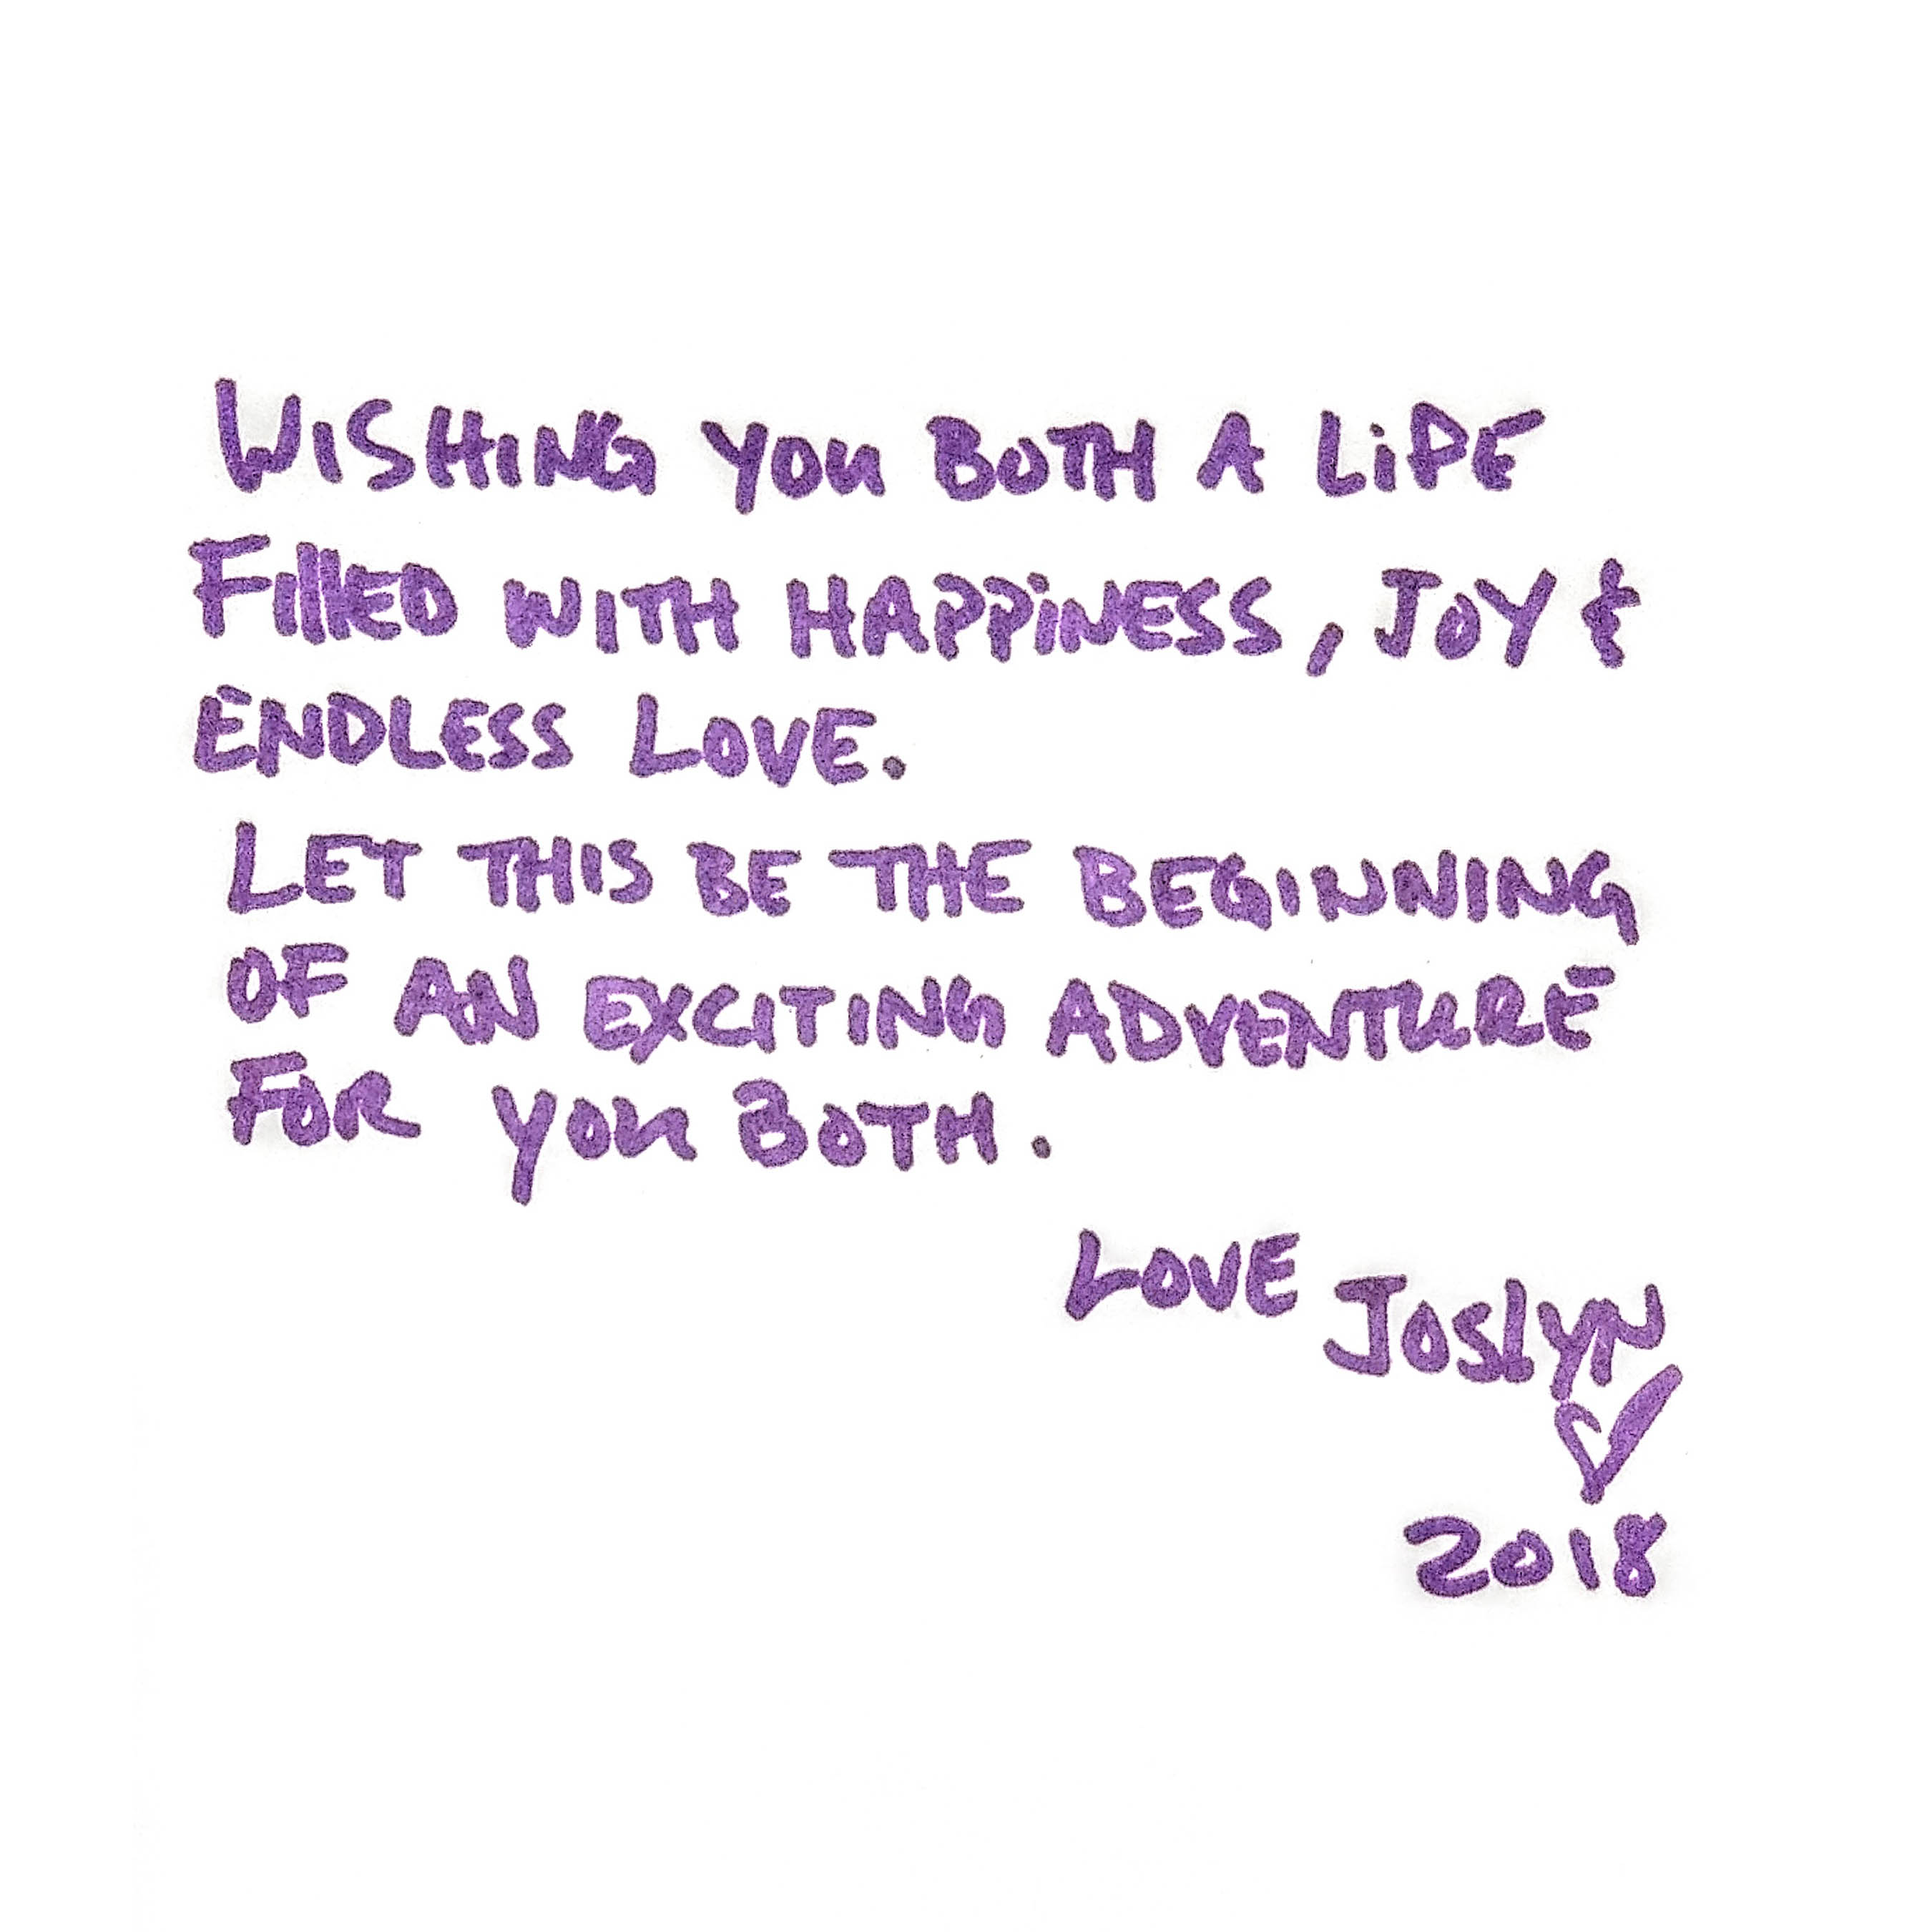 WISHING YOU BOTH A LiFE
FillED WITH HAPPiNESS, JOY &
ENDLESS LOVE.
LET THIS BE THE BEGINNING
OF AN EXCITING ADVENTURE
FOR YOU BOTH.
LOVE JOSlYN
♡
2018